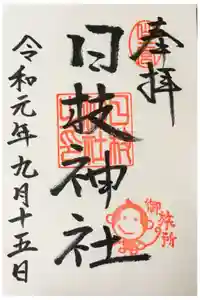 奉拝
日枝神社
御旅所
令和元年九月十五日